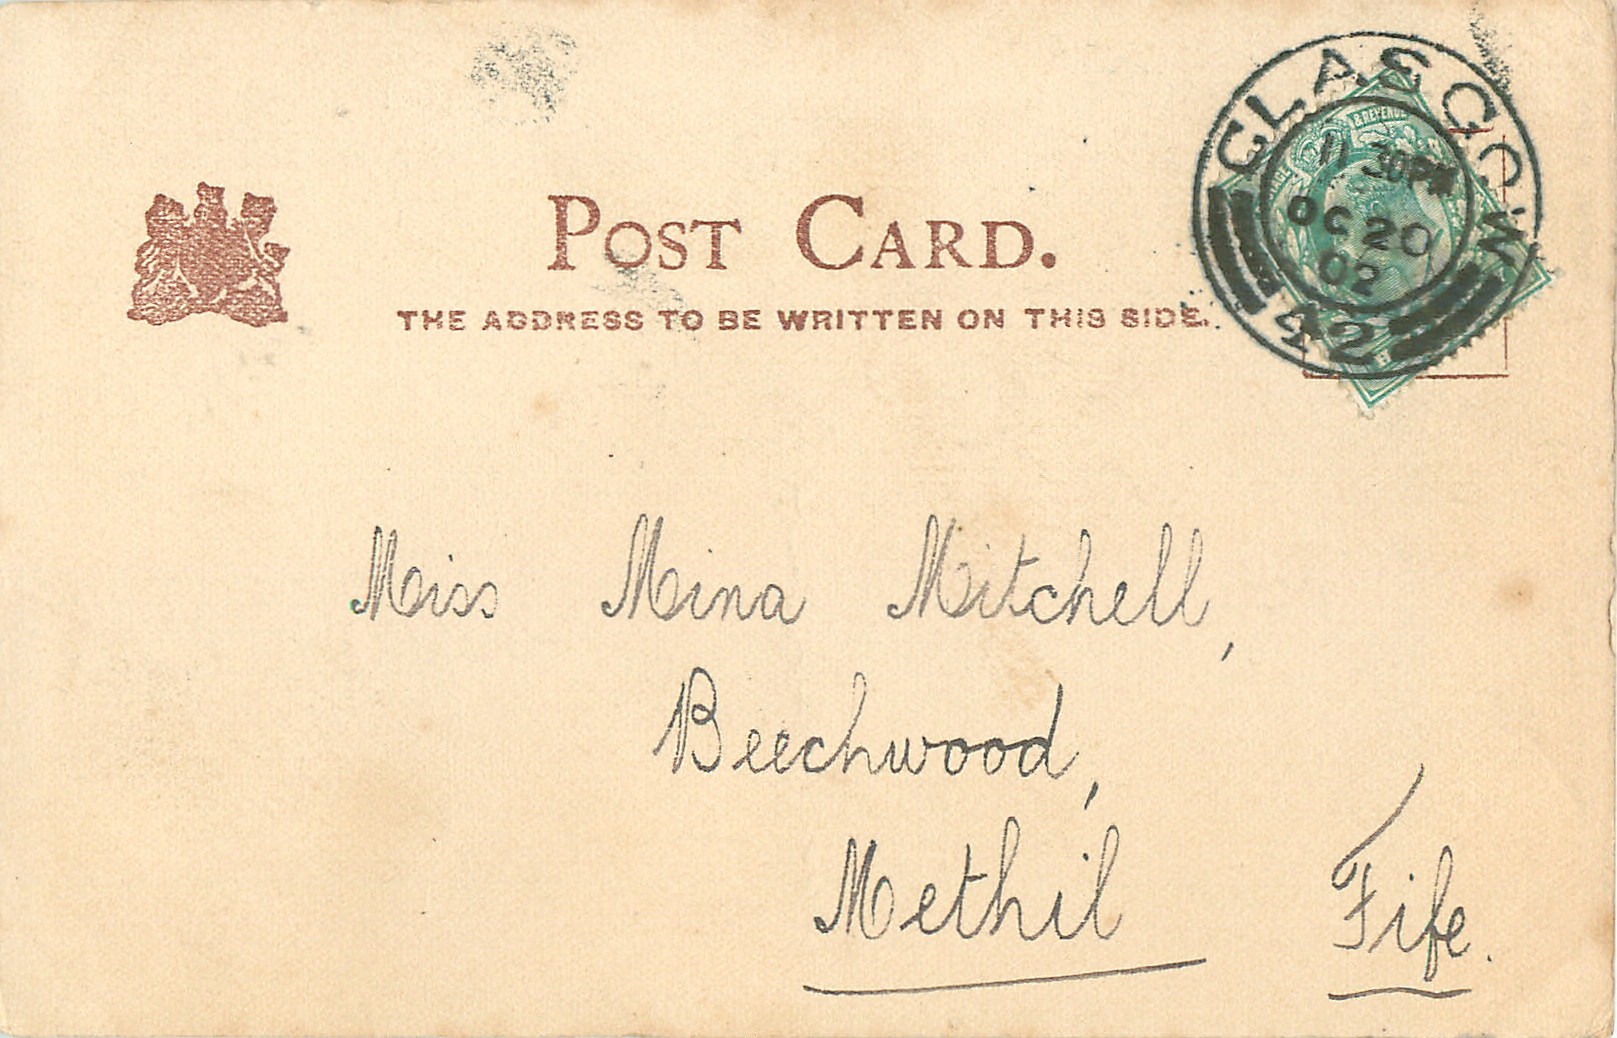 POST CARD.
THE ADDRESS TO BE WRITTEN ON THIS SIDE.
GLASGOW
11 30PM
OC 20
02
42
& REVENUE
Miss Mina Mitchell,
Beechwood,
Methil Fife.